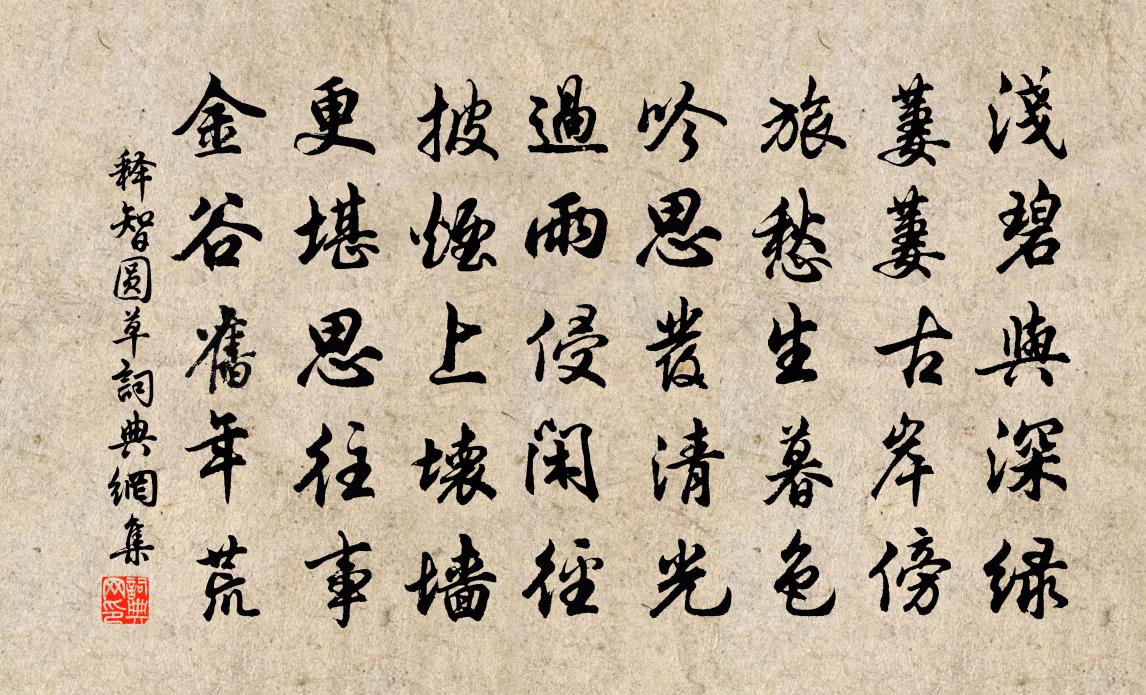 淺碧與深緑
萋萋古岸傍
旅愁生暮色
吟思發清光
過雨侵閑徑
披煙上壞墙
更堪思往事
金谷舊年荒
释智圆草詞典網集
詞典网印